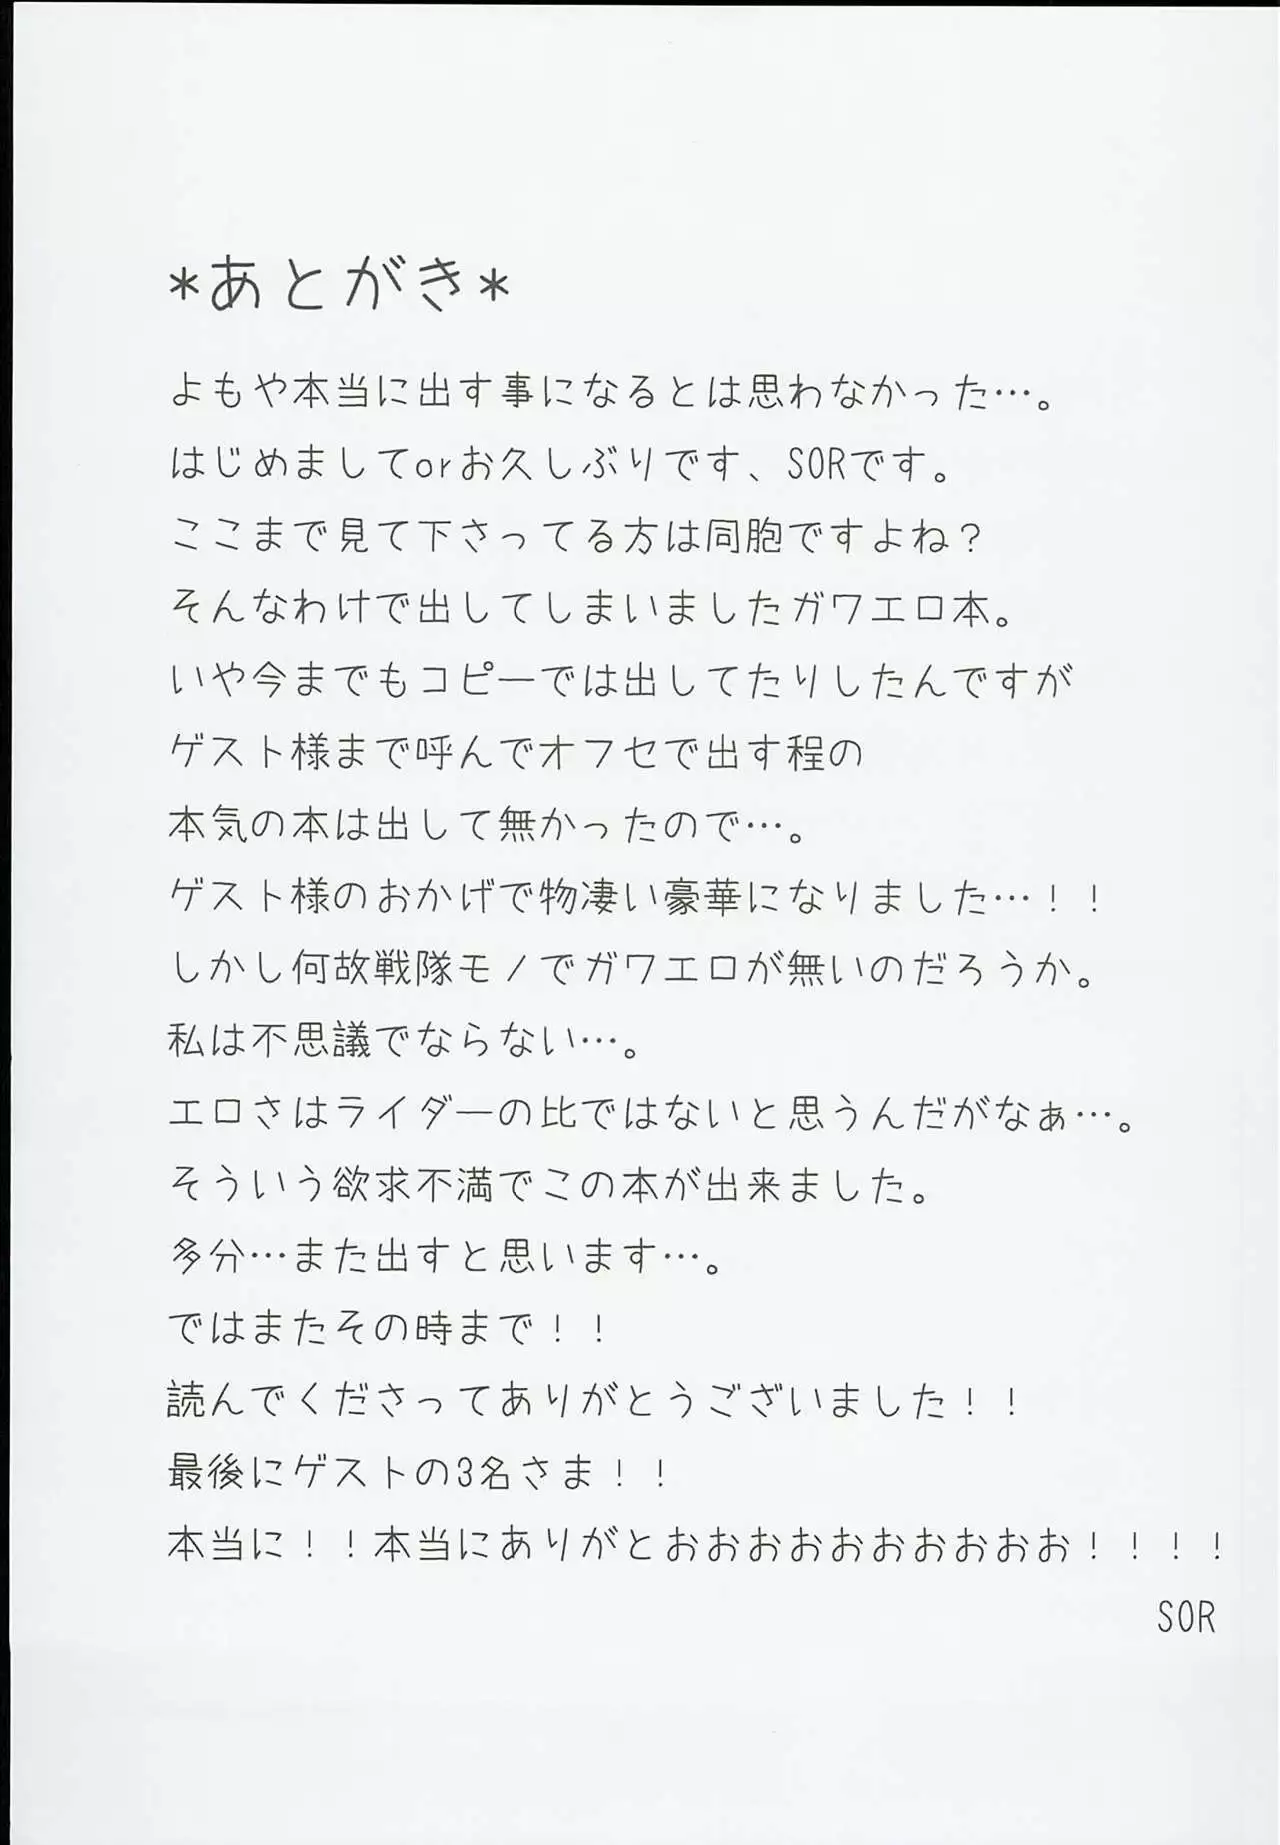 *あとがき*
よもや本当に出す事になるとは思わなかった…。
はじめましてorお久しぶりです、SORです。
ここまで見て下さってる方は同胞ですよね？
そんなわけで出してしまいましたガワエロ本。
いや今までもコピーでは出してたりしたんですが
ゲスト様まで呼んでオフセで出す程の
本気の本は出して無かったので…。
ゲスト様のおかげで物凄い豪華になりました…！！
しかし何故戦隊モノでガワエロが無いのだろうか。
私は不思議でならない…。
エロさはライダーの比ではないと思うんだがなぁ…。
そういう欲求不満でこの本が出来ました。
多分…また出すと思います…。
ではまたその時まで！！
読んでくださってありがとうございました！！
最後にゲストの3名さま！！
本当に！！本当にありがとおおおおおおおおおお！！！！
SOR